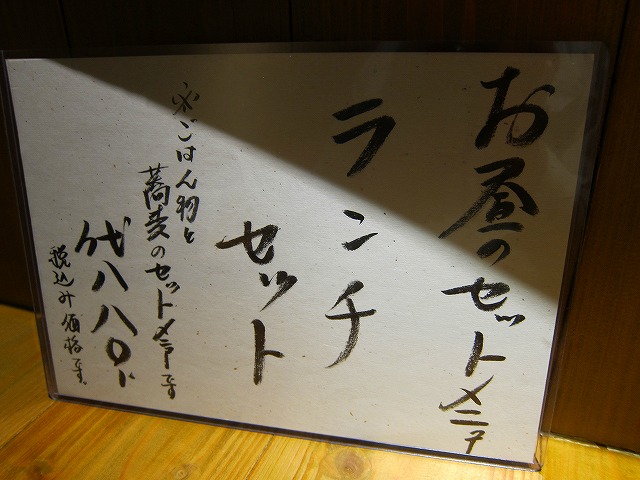 お昼のセットメニュー
ランチ
セット
※ごはん物と
蕎麦のセットメニューです
代八八〇
税込み価格です。